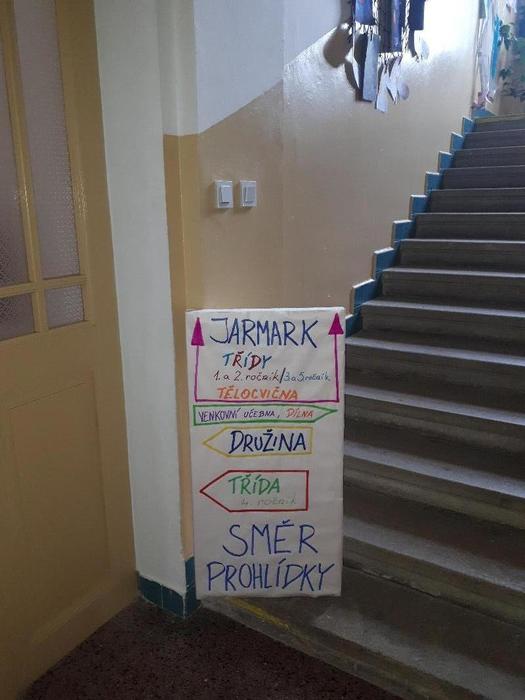 JARMARK
TŘÍDY
1. a 2. ročník/3. a 5. ročník
TĚLOCVIČNA
VENKOVNÍ UČEBNA, DÍLNA
DRUŽINA
TŘÍDA
4. ročník
SMĚR
PROHLÍDKY